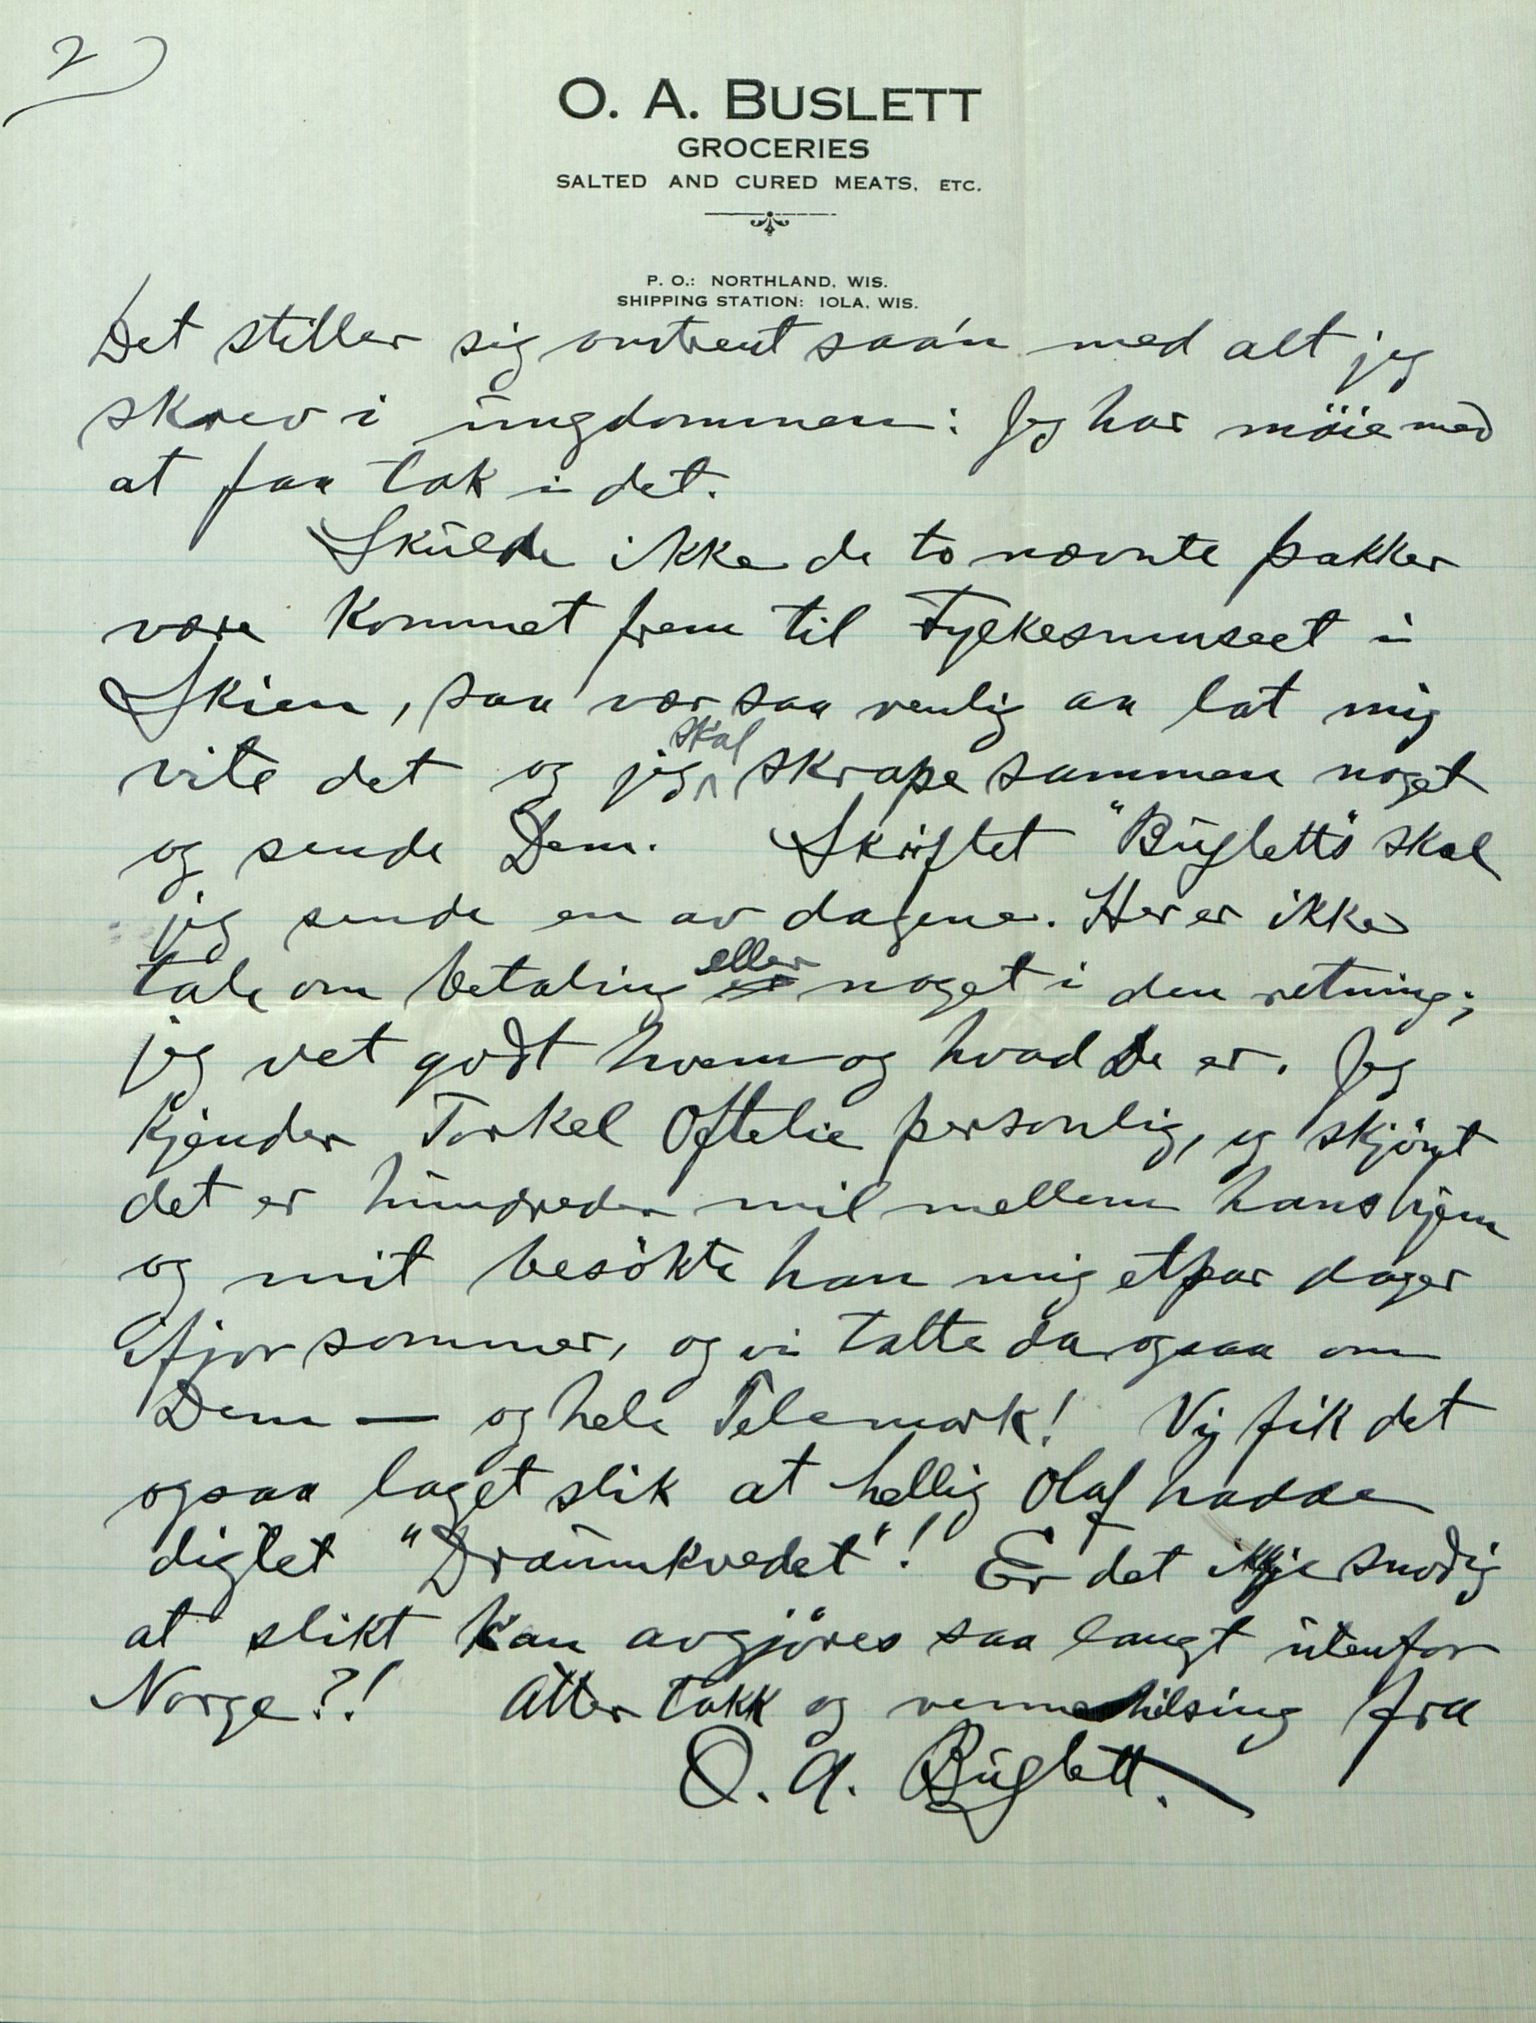 2)
O. A. BUSLETT
GROCERIES
SALTED AND CURED MEATS, ETC.
P. O.: NORTHLAND, WIS.
SHIPPING STATION: IOLA, WIS.
Det stiller sig omtrent saa'n med alt jeg
skrev i ungdommen: Jeg har möie med
at faa tak i det.
Skulde ikke de to nævnte pakker
være kommet frem til Fylkesmuseet i
Skien, saa vær saa venlig aa lat mig
vite det og jeg skal skrape sammen noget
og sende Dem. Skriftet "Buslett's" skal
jeg sende en av dagene. Her er ikke
tale om betaling eller noget i den retning;
jeg vet godt hvem og hvad De er. Jeg
kjender Torkel Oftelie personlig, og skjönt
det er hundreder mil mellem hans hjem
og mit besökte han mig etpar dager
ifjor sommer, og vi talte da ogsaa om
Dem — og hele Telemark! Vi fik det
ogsaa laget slik at hellig Olaf hadde
digtet "Draumkvedet"! Er det ikkje snodig
at slikt kan avgjöres saa langt utenfor
Norge?! Atter takk og vennehilsing fra
O. A. Buslett.